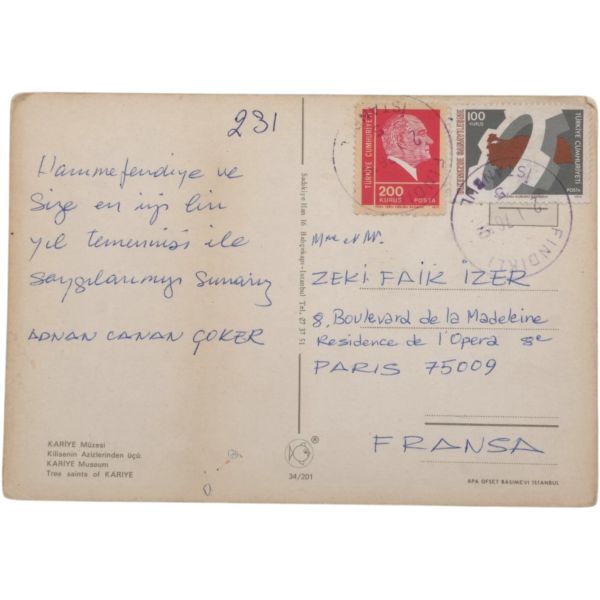 231
Hanımefendiye ve
Size en iyi bir
yıl temennisi ile
saygılarımızı sunarız
ADNAN CANAN ÇOKER
KARİYE Müzesi
Kilisenin Azizlerinden üçü.
KARIYE Museum
Tree saints of KARIYE
Sadıkiye Han 16 Bahçekapı-İstanbul Tel. 27 37 51
34/201
®
TÜRKİYE CUMHURİYETİ
200
KURUŞ POSTA
100
KURUŞ
TÜRKİYE CUMHURİYETİ
POSTA
FINDIKLI
Mme et Mr.
ZEKİ FAİK IZER
8, Boulevard de la Madeleine
Residence de l'Opera 8e
PARIS 75009
FRANSA
APA OFSET BASIMEVİ İSTANBUL